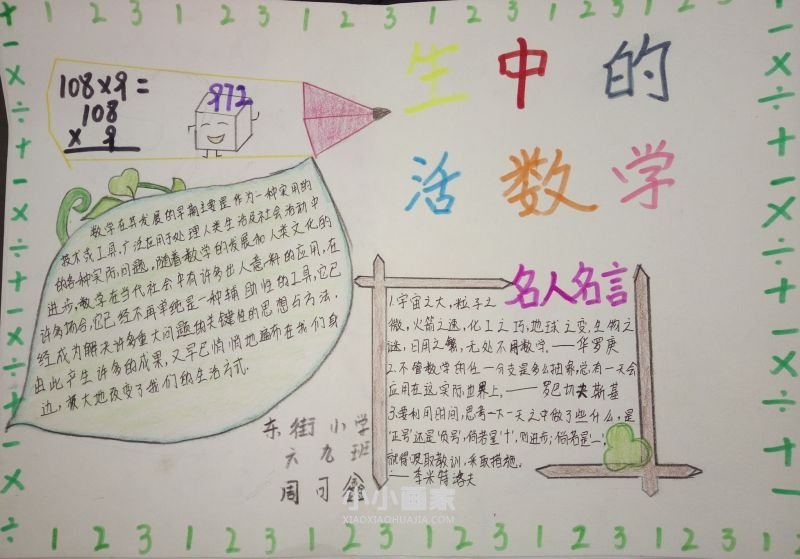 1 2 3 1 2 3 1 2 3 1 2 3 1 2 3
+ - × ÷ + - × ÷ + - × ÷ + - × ÷
108×9=
108
× 9
972
生中的
活数学
数学在其发展的早期主要是作为一种实用的
技术或工具,广泛应用于处理人类生活及社会活动中
的各种实际问题,随着数学的发展和人类文化的
进步,数学在当代社会中有许多出人意料的应用,在
许多场合,它已经不再单纯是一种辅助性的工具,它已
经成为解决许多重大问题的关键性的思想与方法,
由此产生许多的成果,又早已悄悄地遍布在我们身
边,极大地改变了我们的生活方式.
名人名言
1.宇宙之大,粒子之
微,火箭之速,化工之巧,地球之变,生物之
谜,日用之繁,无处不用数学.——华罗庚
2.不管数学的任一分支是多么抽象,总有一天会
应用在这实际世界上,——罗巴切夫斯基
3.要利用时间,思考一下一天之中做了些什么,是
'正号'还是'负号',倘若是'十',则进步;倘若是'一',
就得吸取教训,采取措施.
——季米特洛夫
东街小学
六九班
周可鑫
小小画家
XIAOXIAOHUAJIA.COM